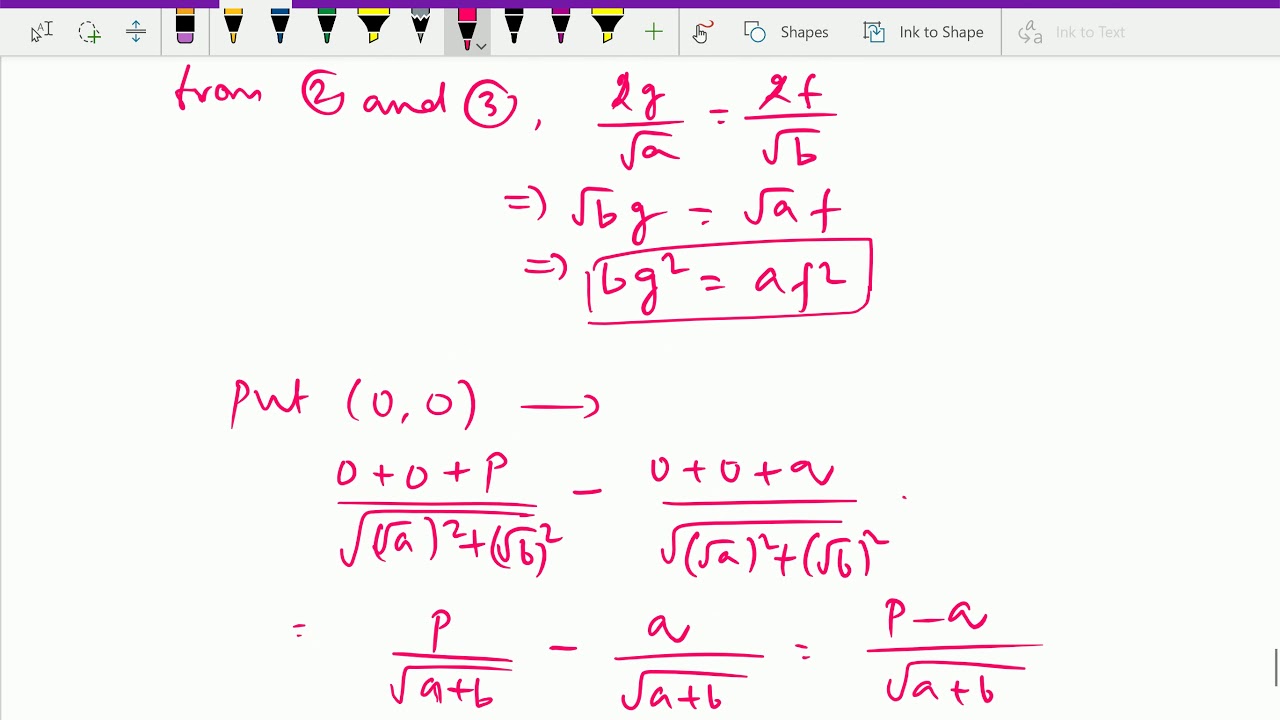 Shapes Ink to Shape Ink to Text
from ② and ③, 2g/√a = 2f/√b
=> √b g = √a f
=> bg² = af²
Put (0,0) ⟶
0+0+p/√(√a)²+(√b)² - 0+0+q/√(√a)²+(√b)²
= p/√a+b - q/√a+b = p-q/√a+b